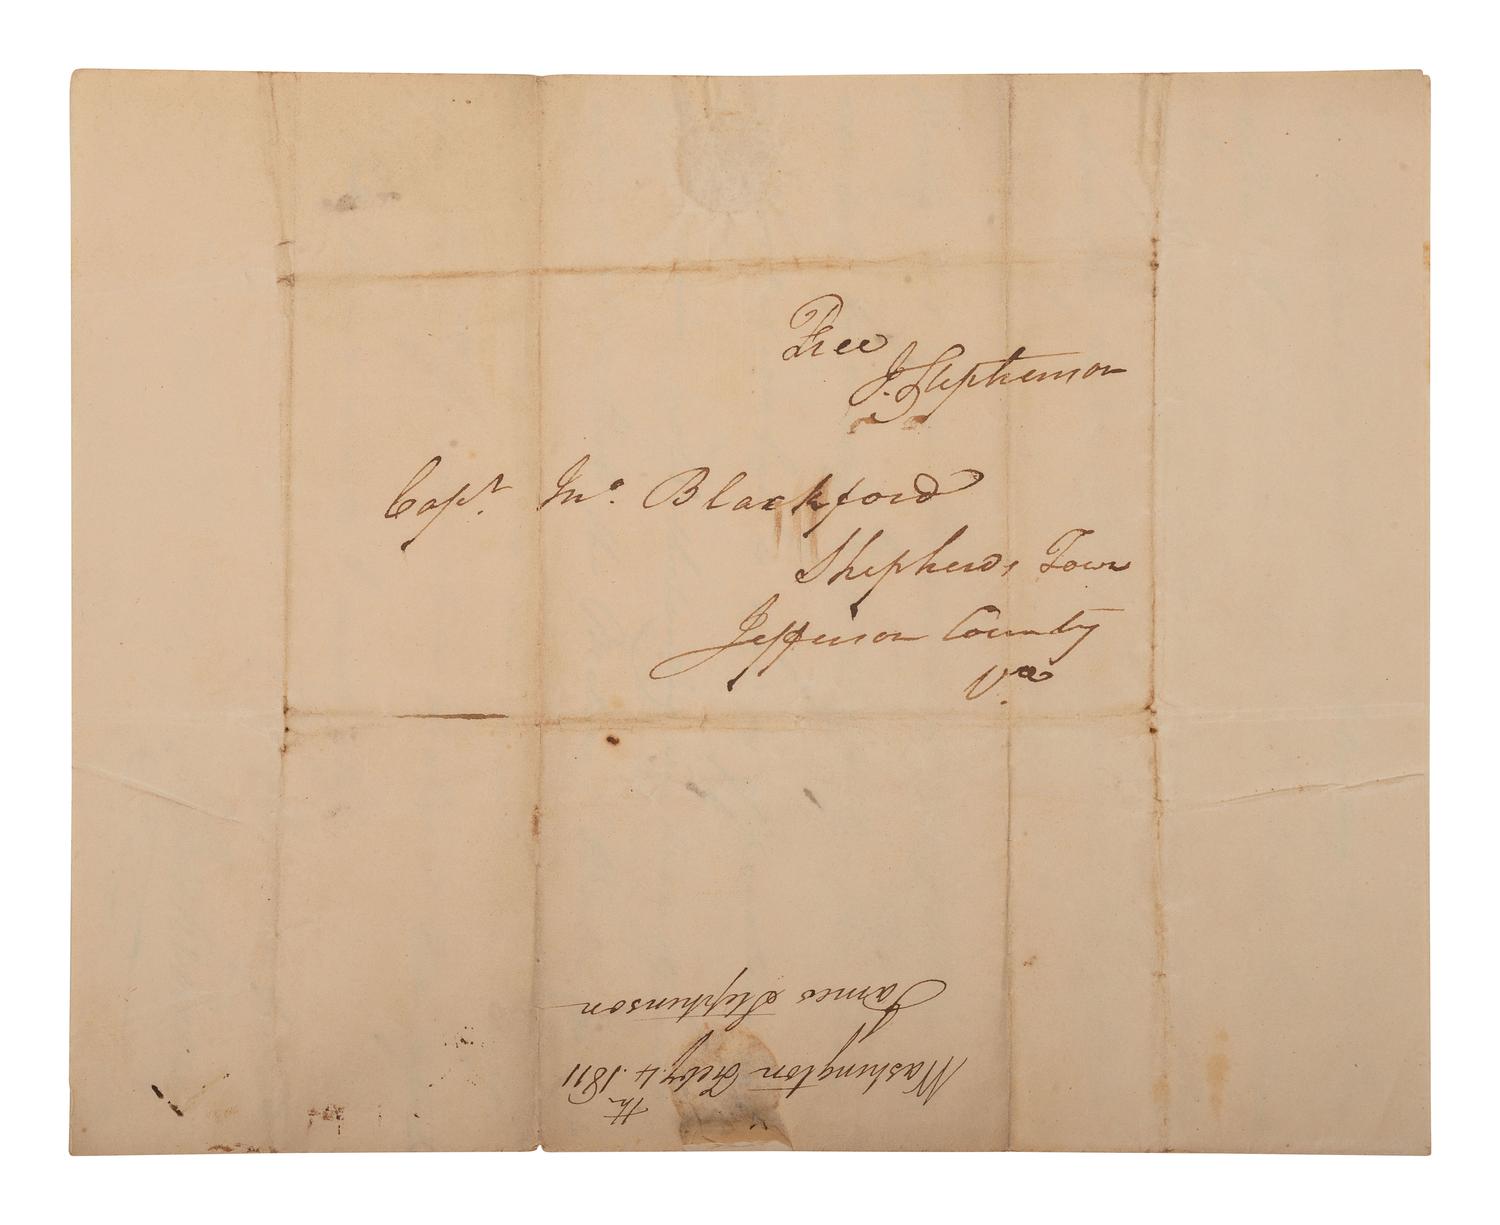 Free
J. Stephenson
Capt. Mo. Blackford
Shepherds Town
Jefferson County
Va
James Stephenson
Washington Feby. 4th 1811